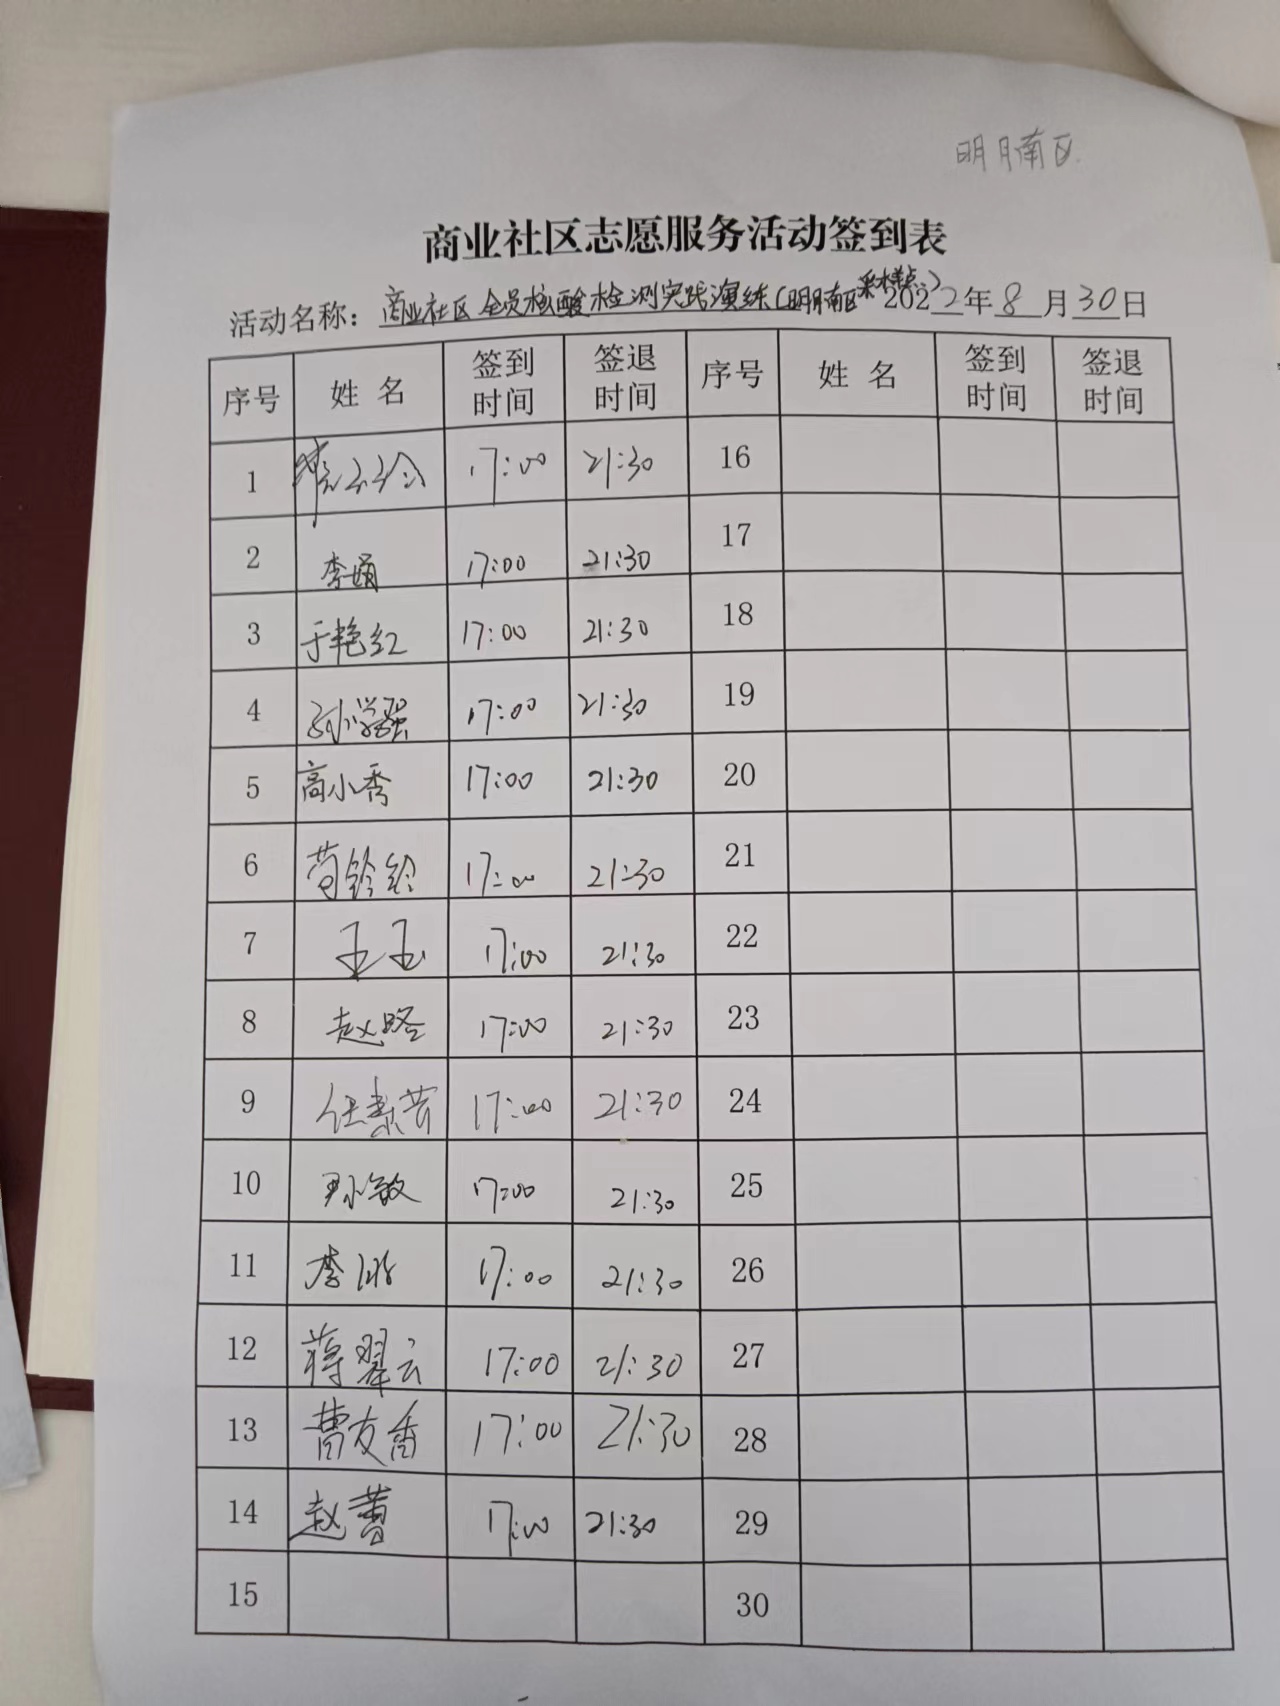 明月南区
商业社区志愿服务活动签到表
活动名称：商业社区全员核酸检测实践演练(明月南区采样点) 2022年8月30日
序号 姓名 签到时间 签退时间 序号 姓名 签到时间 签退时间
1 17:00 21:30 16
2 李娟 17:00 21:30 17
3 于艳红 17:00 21:30 18
4 孙学强 17:00 21:30 19
5 高小秀 17:00 21:30 20
6 苟铃铃 17:00 21:30 21
7 王玉 17:00 21:30 22
8 赵路 17:00 21:30 23
9 任素芳 17:00 21:30 24
10 敏 17:00 21:30 25
11 李 17:00 21:30 26
12 蒋翠云 17:00 21:30 27
13 曹友香 17:00 21:30 28
14 赵蕾 17:00 21:30 29
15 30